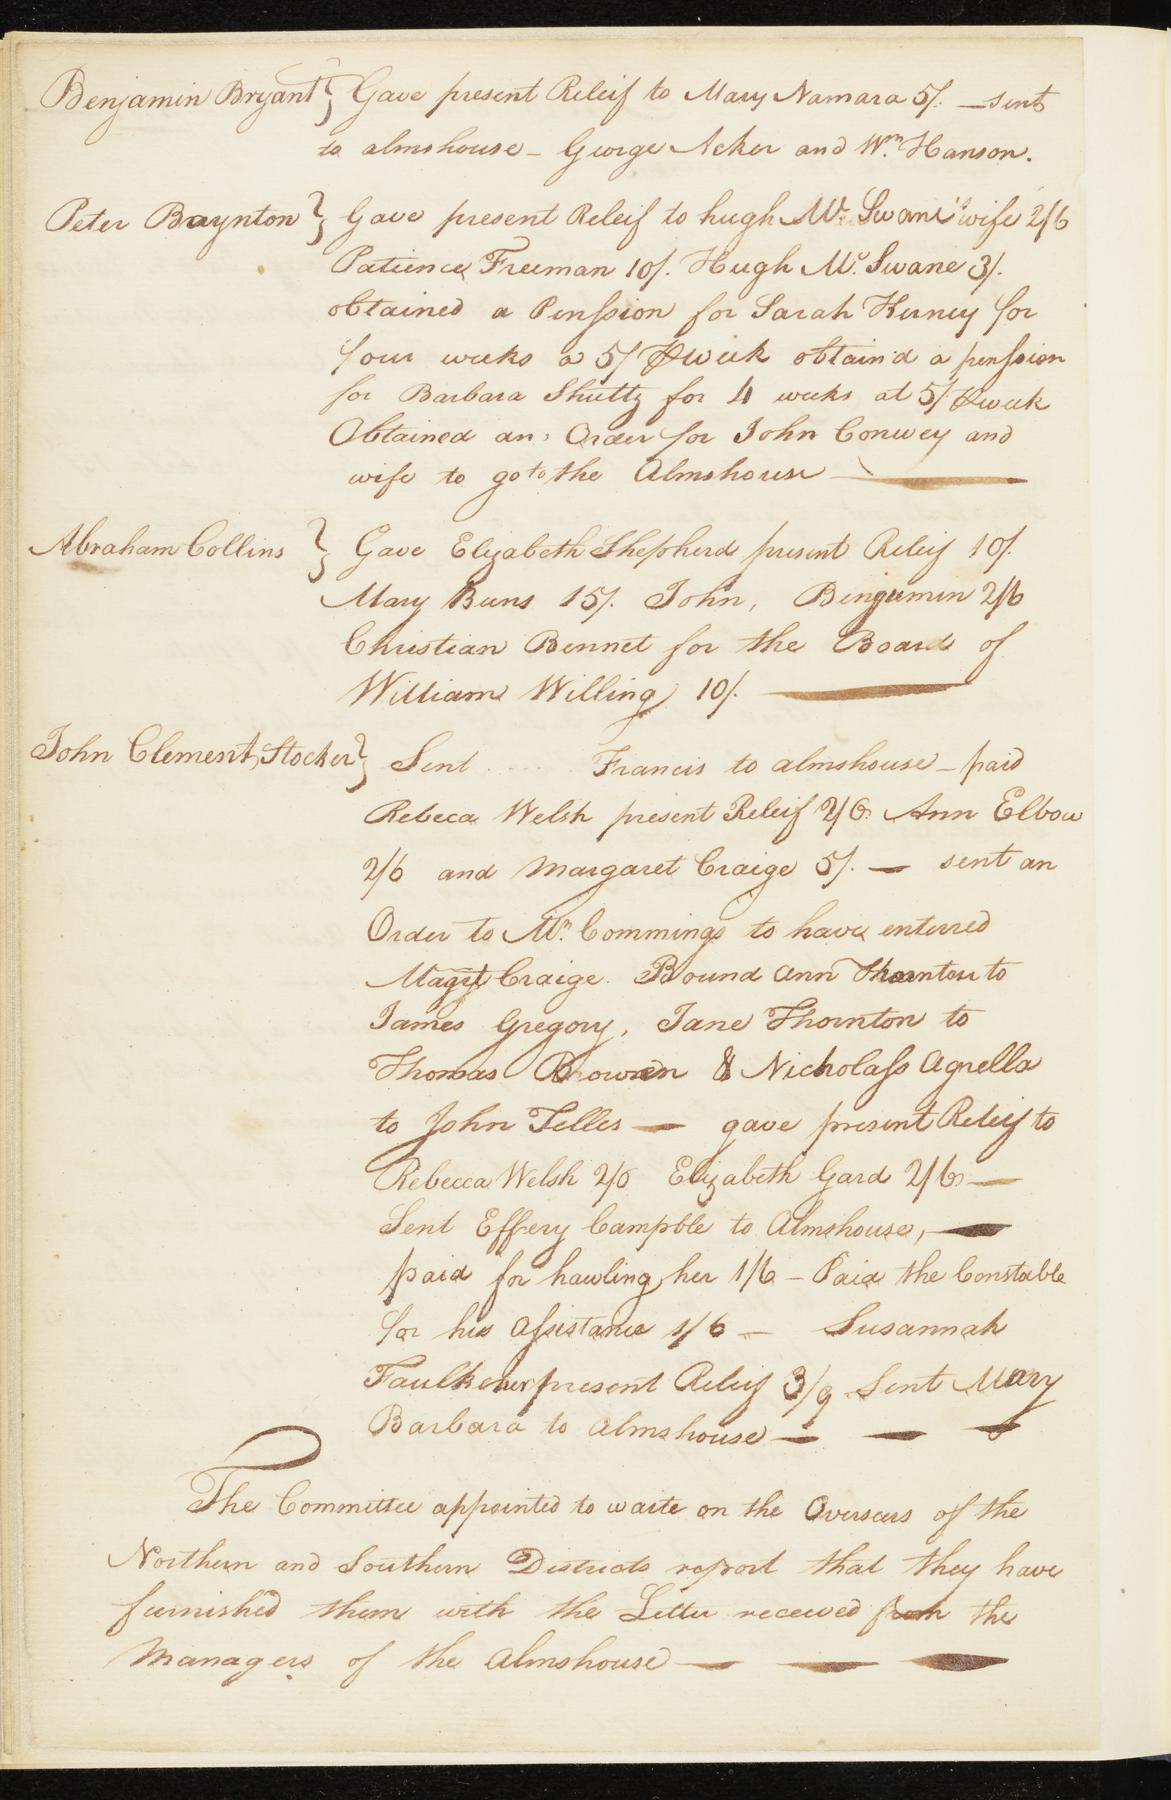 Benjamin Bryant } Gave present Releif to Mary Namara 5/. — sent
to almshouse – George Acker and Wm. Hanson.
Peter Baynton } Gave present Releif to hugh Mc. Swane's wife 2/6
Patience Freeman 10/. Hugh Mc. Swane 3/.
obtained a Penssion for Sarah Kerney for
four weeks a 5/ ⅌ week obtain'd a penssion
for Barbara Shuttz for 4 weeks at 5/. ⅌ week
Obtained an Order for John Conwey and
wife to go to the Almshouse —
Abraham Collins } Gave Elizabeth Shepherd present Releif 10/.
Mary Buns 15/. John, Benjamin 2/6
Christian Bennet for the Board of
William Willing 10/. —
John Clement Stocker } Sent .... Francis to almshouse – paid
Rebeca Welsh present Releif 2/6 Ann Elbow
2/6 and Margaret Craige 5/. — sent an
Order to Mr. Commings to have enterred
Magt Craige. Bound Ann Thornton to
James Gregory, Jane Thornton to
Thomas Browen & Nicholass Agnella
to John Telles — gave present Releif to
Rebecca Welsh 2/6 Elizabeth Gard 2/6 —
Sent Effery Campble to Almshouse, —
paid for hawling her 1/6 – Paid the Constable
for his Assistance 1/6 — Susannah
Faulkener present Releif 3/9 Sent Mary
Barbara to Almshouse — — —
The Committee appointed to waite on the Overseers of the
Northern and Southern Districts report that they have
furnished them with the Letter received from the
Managers of the Almshouse — — —